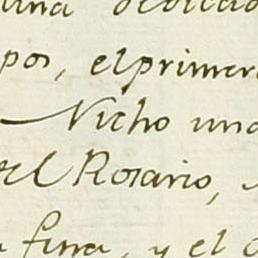 una dedicac
pos, el primer
Nicho una
el Rosario,
fina, y el